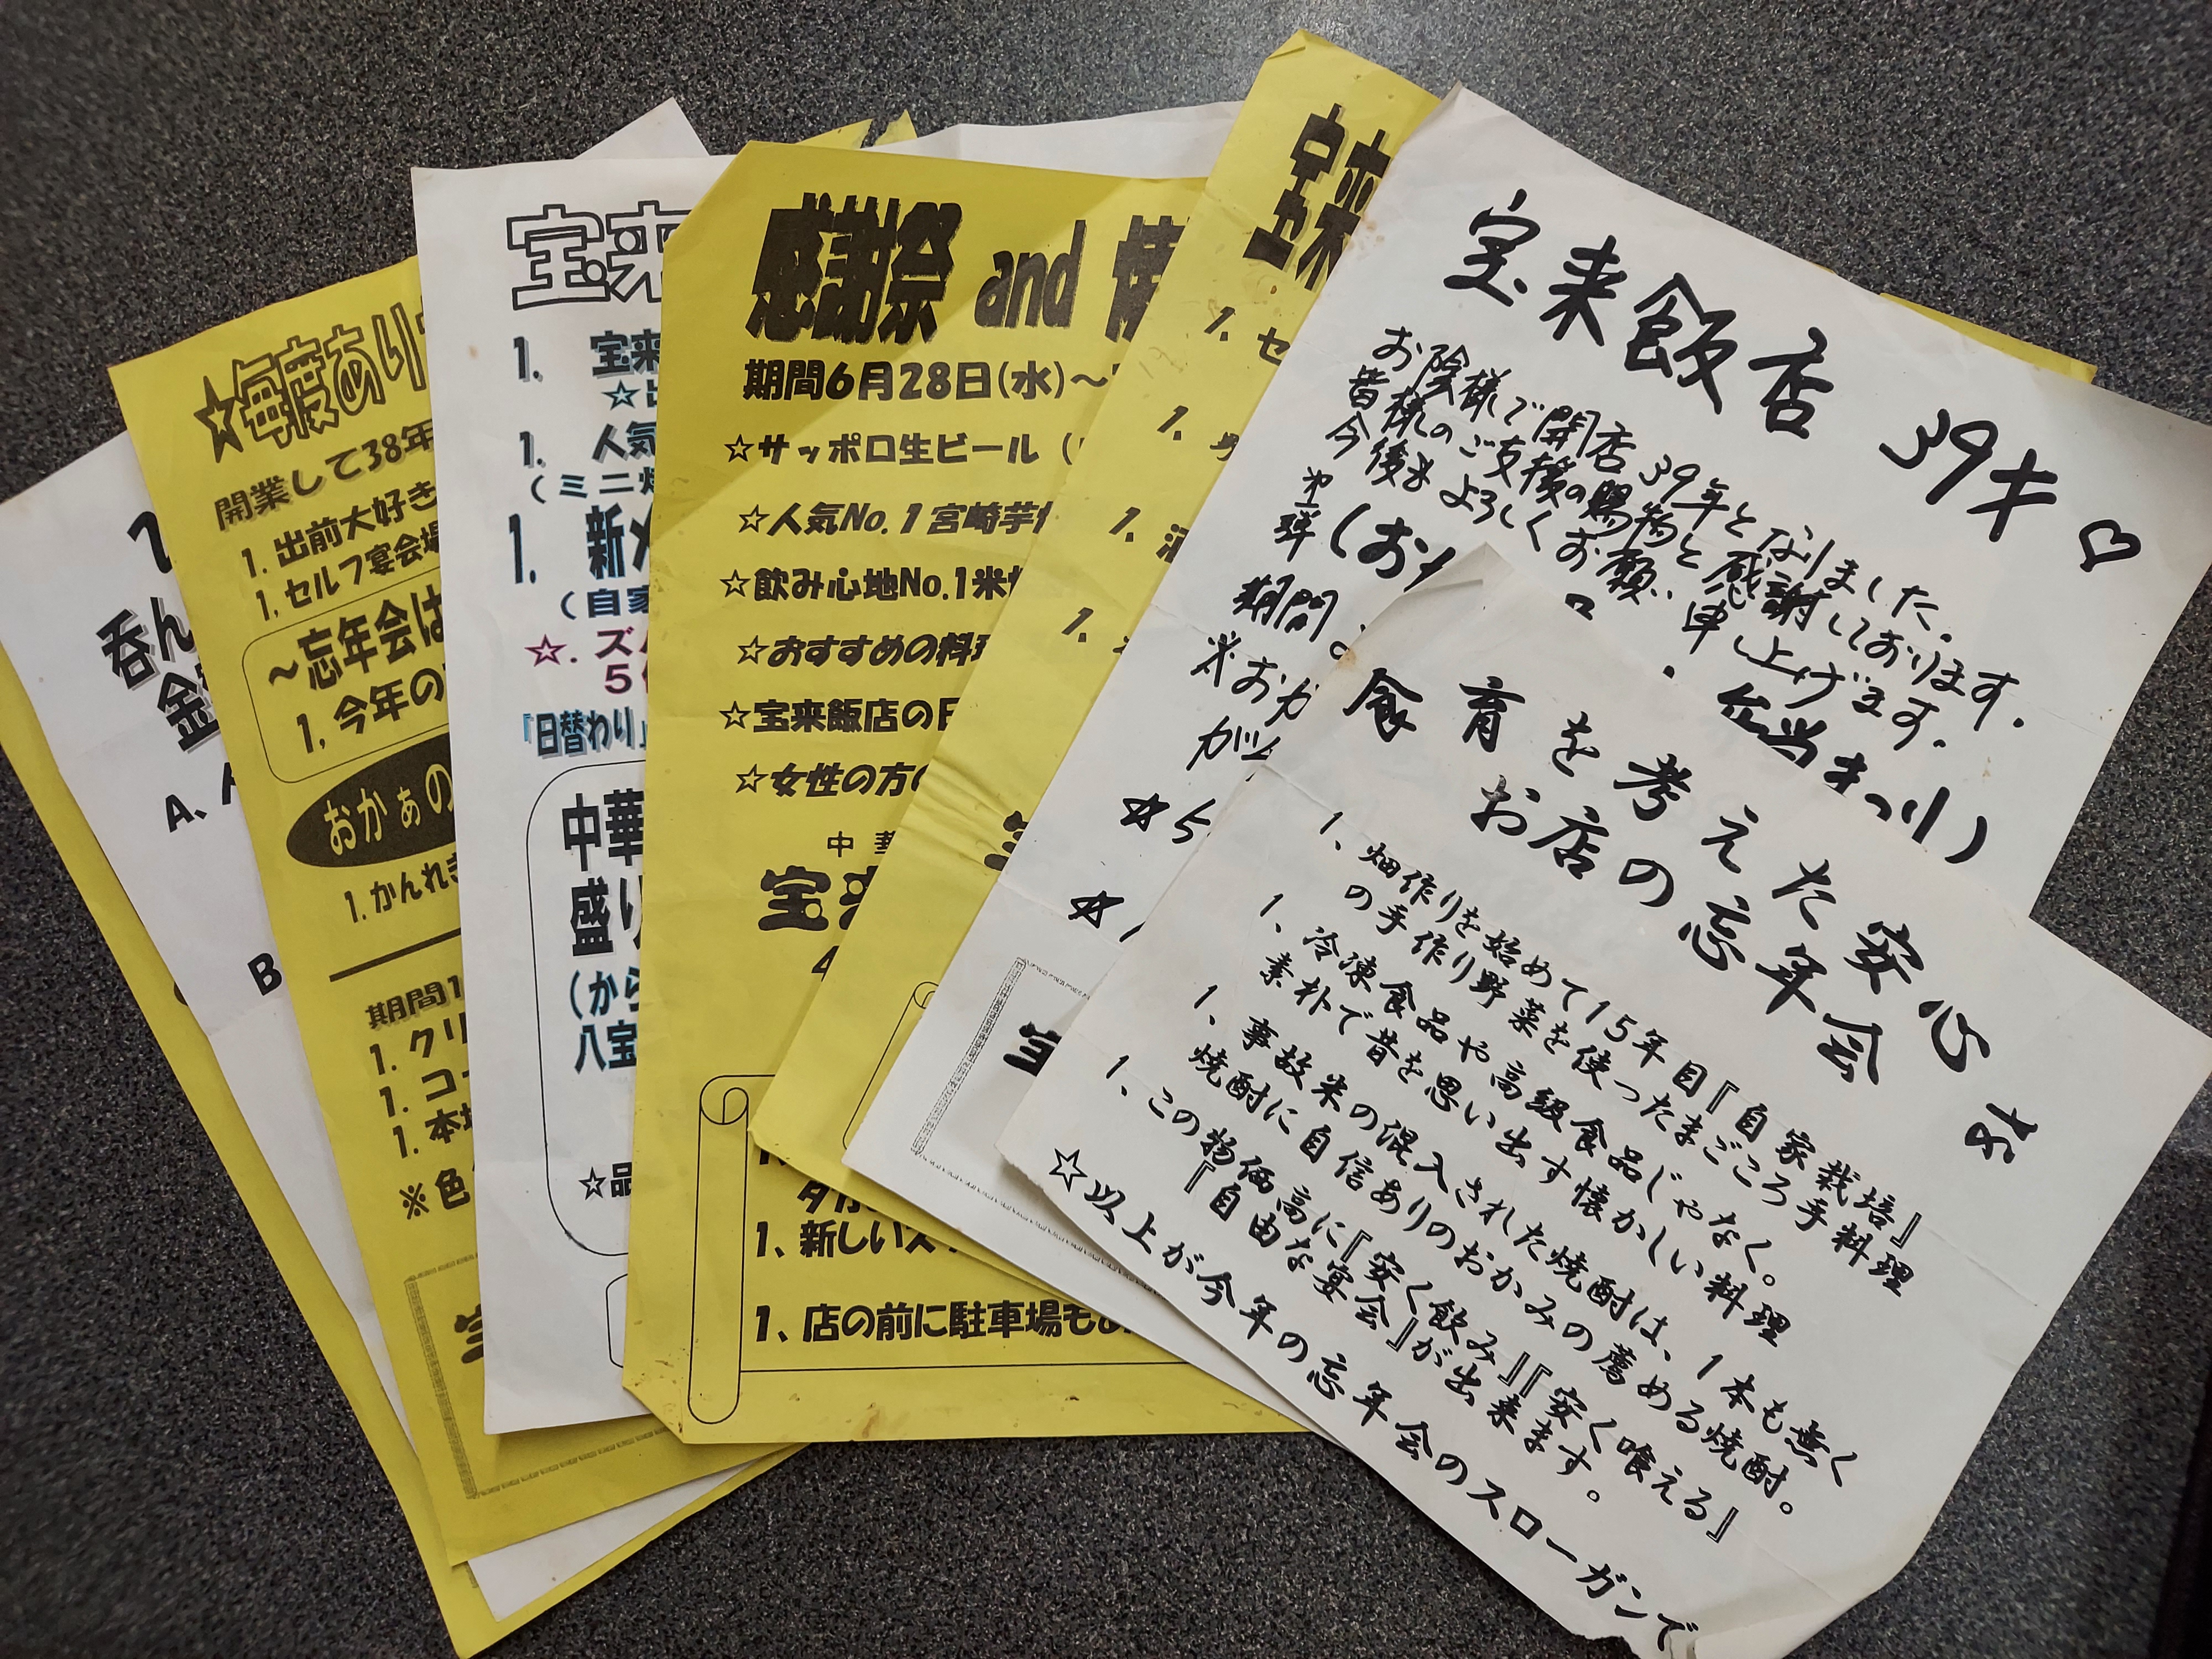 呑ん
金
A、
B
☆毎度あり
開業して38年
1. 出前大好き
1. セルフ宴会場
～忘年会は
1. 今年の
おかぁの
1. かんれき
期間1
1. クリ
1. コー
1. 本場
※色
宝来
1. 宝来
☆出
1. 人気
(ミニ焼
1. 新メ
(自家
☆. ズバ
5
『日替わり』
中華
盛り
(から
八宝
☆品
感謝祭 and
期間6月28日(水)～
☆サッポロ生ビール (
☆人気No.1宮崎芋焼
☆飲み心地No.1米焼
☆おすすめの料理
☆宝来飯店の日
☆女性の方の
中華
宝来
4
夕方
1、新しいス
1、店の前に駐車場も
宝来
1、セ
1、
1、酒
1、
宝来飯店 39才♡
お陰様で開店39年となりました。
皆様のご支援の賜物と感謝しております。
今後もよろしくお願い申し上げます。
期間
※おか
が
☆5
☆
食育を考えた安心な
お店の忘年会
1、畑作りを始めて15年目『自家栽培』
の手作り野菜を使ったまごころ手料理
1、冷凍食品や高級食品じゃなく。
素朴で昔を思い出す懐かしい料理
1、事故米の混入された焼酎は、1本も無く
焼酎に自信ありのおかみの薦める焼酎。
1、この物価高に『安く飲み』『安く喰える』
『自由な宴会』が出来ます。
☆以上が今年の忘年会のスローガンで